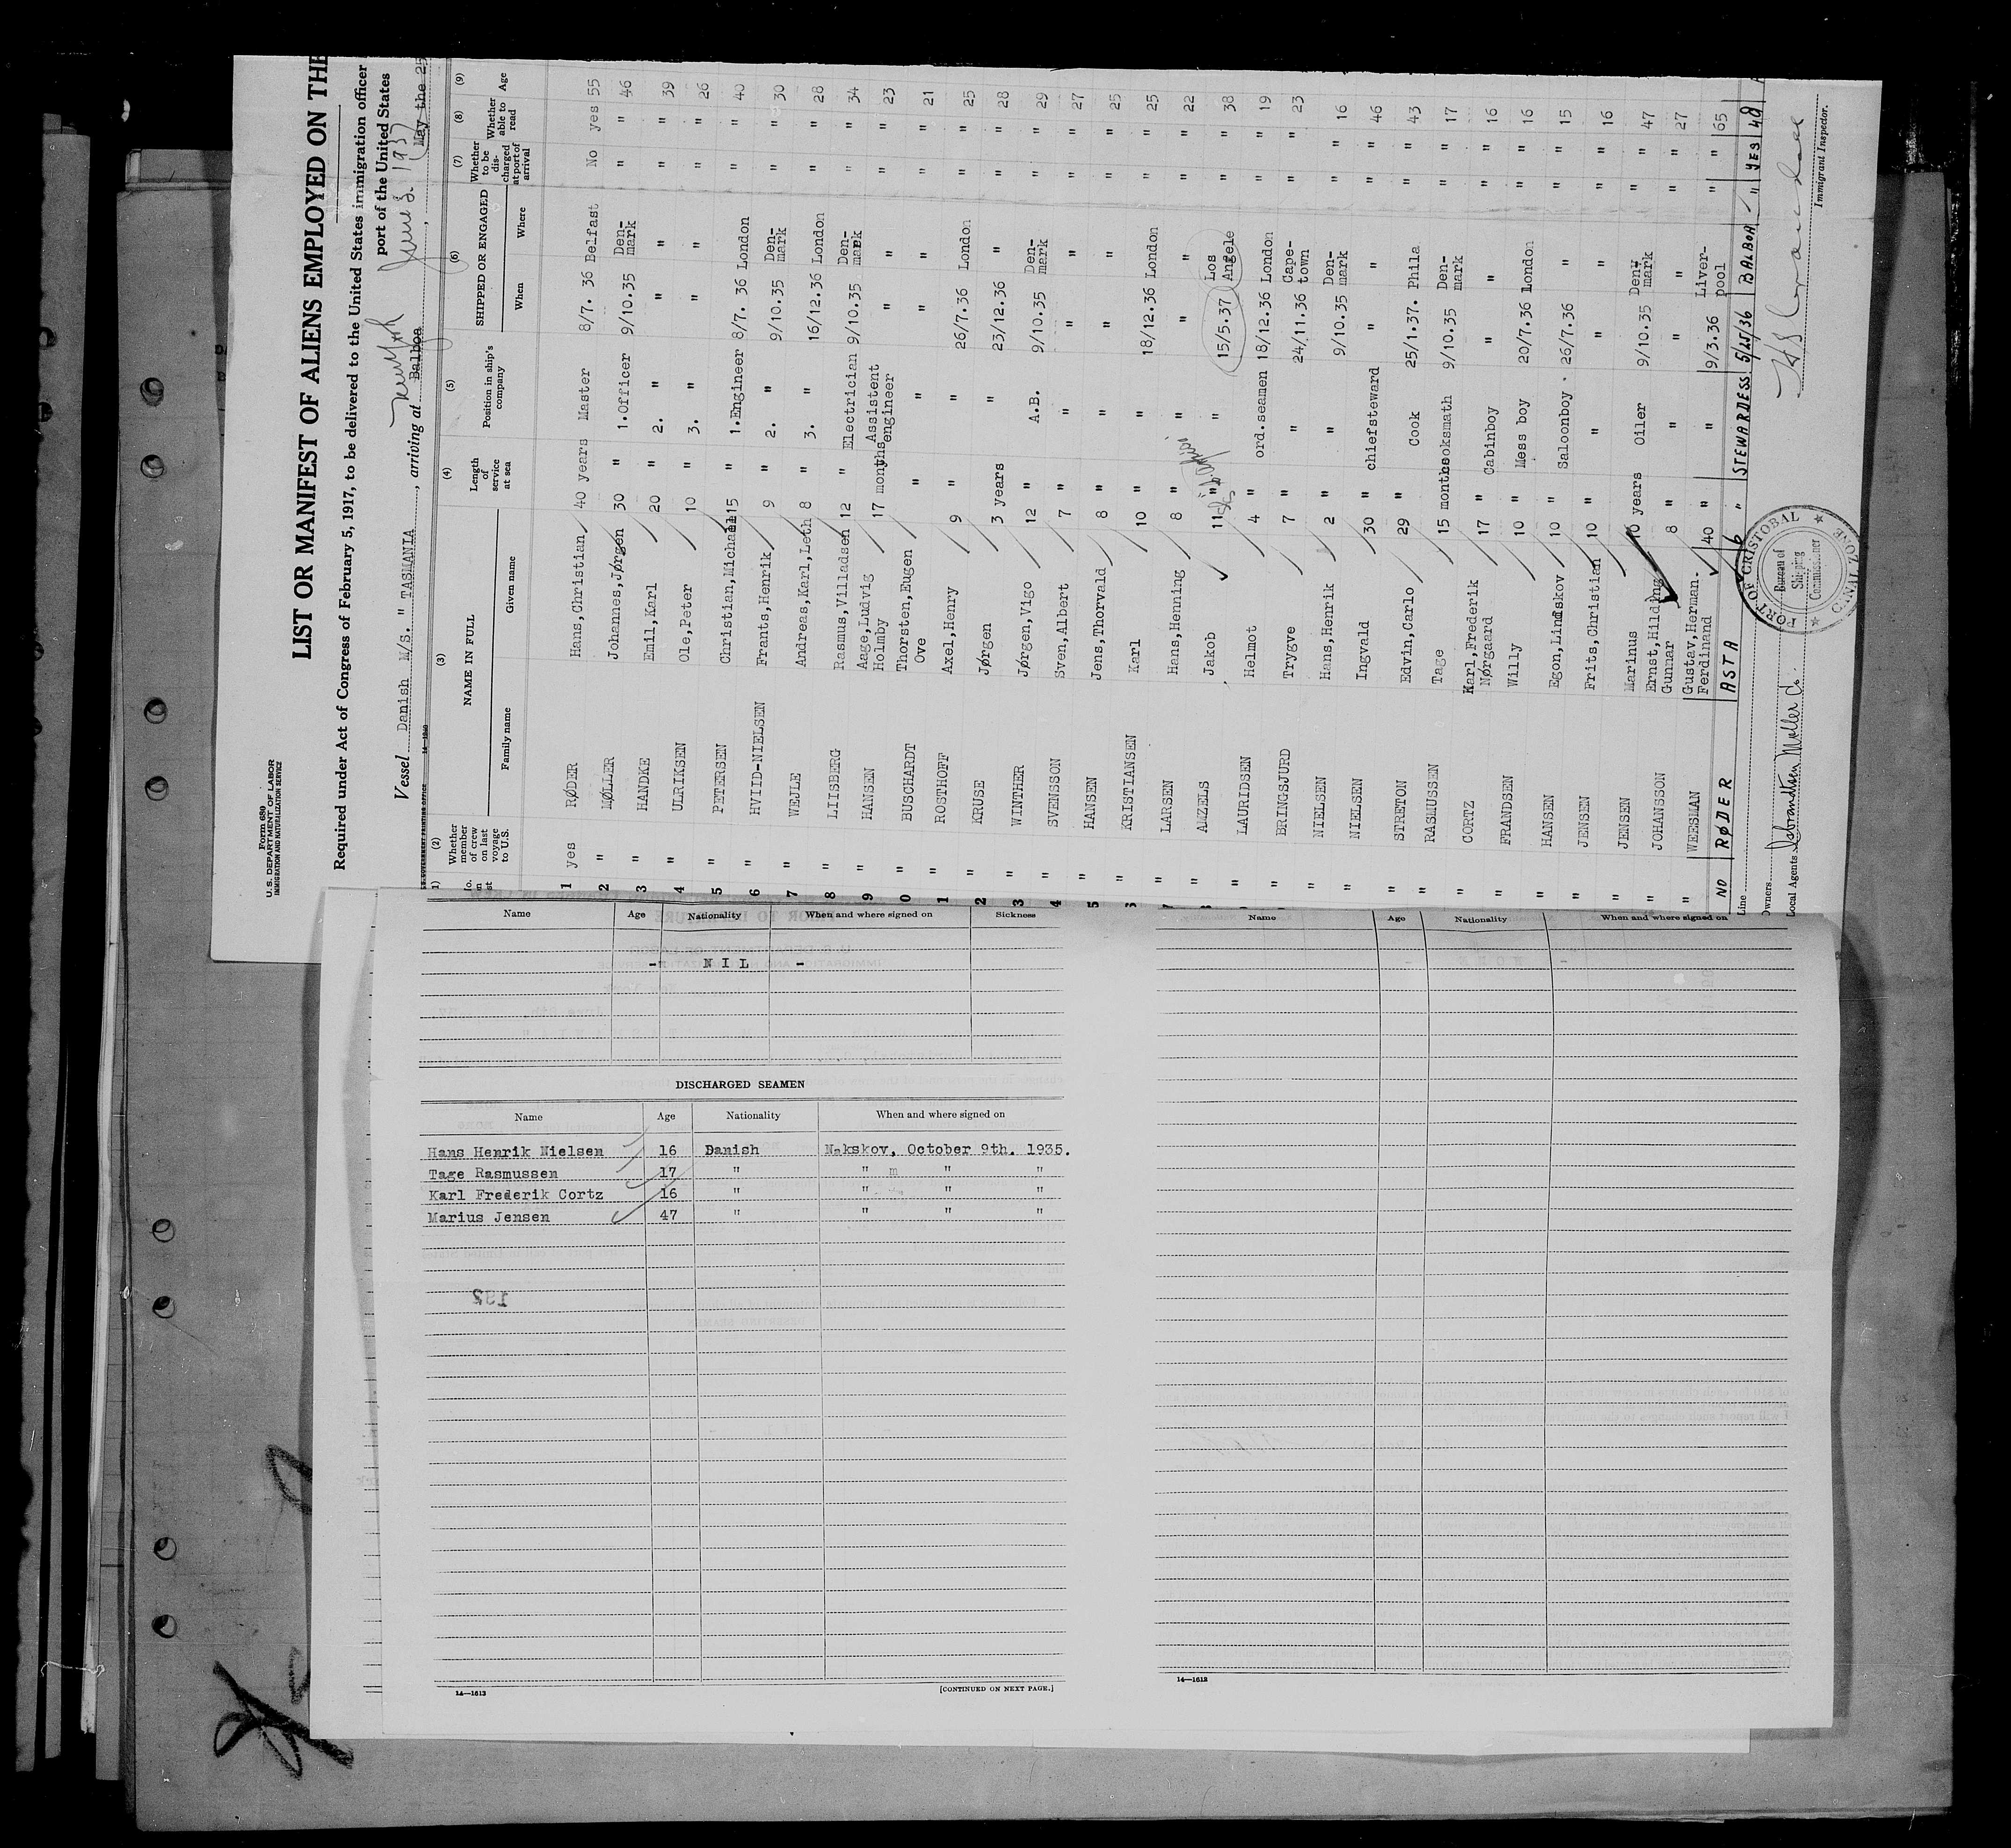 Form 680
U.S. DEPARTMENT OF LABOR
IMMIGRATION AND NATURALIZATION SERVICE
LIST OR MANIFEST OF ALIENS EMPLOYED ON THE
Required under Act of Congress of February 5, 1917, to be delivered to the United States immigration officer
port of the United States
Vessel Danish M/s. " TASMANIA , arriving at Balboa , May the 25
New York June 3. 1937
(2) (3) (4) (5) (6) (7) (8) (9)
Whether member of crew on last voyage to U.S. NAME IN FULL Length of service at sea Position in ship's company SHIPPED OR ENGAGED Whether to be discharged at port of arrival Whether able to read Age
Family name Given name When Where
1 yes RØDER Hans,Christian 40 years Master 8/7. 36 Belfast No yes 55
2 " MØLLER Johannes,Jørgen 30 " 1.Officer 9/10.35 Den-mark " " 46
3 " HANDKE Emil,Karl 20 " 2. " " " " " 39
4 " ULRIKSEN Ole,Peter 10 " 3. " " " " " 26
5 " PETERSEN Christian,Michael 15 " 1.Engineer 8/7. 36 London " " 40
6 " HVIID-NIELSEN Frants,Henrik 9 " 2. " 9/10.35 Den-mark " " 30
7 " WEJLE Andreas,Karl,Leth 8 " 3. " 16/12.36 London " " 28
8 " LIISBERG Rasmus,Villadsen 12 " Electrician 9/10.35 Den-mark " " 34
9 " HANSEN Aage,Ludvig Holmby 17 months Assistent engineer " " " " 23
0 " BUSCHARDT Thorsten,Eugen Ove " " " " " " 21
1 " ROSTHOFF Axel,Henry 9 " " 26/7.36 London " " 25
2 " KRUSE Jørgen 3 years " 23/12.36 " " " 28
3 " WINTHER Jørgen,Vigo 12 " A.B. 9/10.35 Den-mark " " 29
4 " SVENSSON Sven,Albert 7 " " " " " " 27
5 " HANSEN Jens,Thorvald 8 " " " " " " 25
" KRISTIANSEN Karl 10 " " 18/12.36 London " " 25
" LARSEN Hans,Henning 8 " " " " " " 22
" AMZELS Jakob 11 " " 15/5.37 Los Angele " " 38
" LAURIDSEN Helmot 4 " ord.seamen 18/12.36 London " " 19
" BRINGSJURD Trygve 7 " " 24/11.36 Cape-town " " 23
" NIELSEN Hans,Henrik 2 " " 9/10.35 Den-mark " " 16
" NIELSEN Ingvald 30 " chiefsteward " " " " 46
" STRETON Edvin,Carlo 29 " Cook 25/1.37. Phila " " 43
" RASMUSSEN Tage 15 months cooksmath 9/10.35 Den-mark " " 17
" CORTZ Karl,Frederik Nørgaard 17 " Cabinboy " " " " 16
" FRANDSEN Willy 10 " Mess boy 20/7.36 London " " 16
" HANSEN Egon,Lindskov 10 " Saloonboy 26/7.36 " " " 15
" JENSEN Frits,Christian 10 " " " " " " 16
" JENSEN Marinus 10 years Oiler 9/10.35 Den-mark " " 47
" JOHANSSON Ernst,Hilding Gunnar 8 " " " " " " 27
" WEESMAN Gustav,Herman. Ferdinand 40 " " 9/3.36 Liver-pool " " 65
NO RØDER ASTA 6 " STEWARDESS 5/25/36 BALBOA " YES 48
Line
Owners
Local Agents
Immigrant Inspector.
PORT OF CRISTOBAL
CANAL ZONE
Bureau of
Shipping
Commissioner
Name Age Nationality When and where signed on Sickness
- NIL -
DISCHARGED SEAMEN
Name Age Nationality When and where signed on
Hans Henrik Nielsen 16 Danish Nakskov, October 9th. 1935.
Tage Rasmussen 17 " " m " "
Karl Frederik Cortz 16 " " " "
Marius Jensen 47 " " " "
132
14—1613
[CONTINUED ON NEXT PAGE.]
Name Age Nationality When and where signed on
14—1613